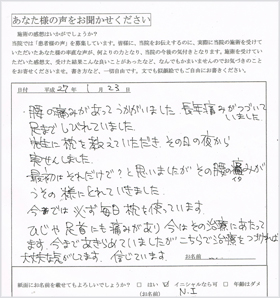 あなた様の声をお聞かせください
施術の感想はいかがでしょうか?
当院では「患者様の声」を募集しています。皆様に、当院をお伝えするのに、実際に当院の施術を受けて
いただいたあなた様の率直な声が、何よりの力となり、当院の今後の気付きとなります。施術を受けて
いただいた感想文、受けた結果こんな良いことがあったなど、なんでもかまいませんのでお気づきのこと
をお寄せくださいませ。書き方など、一切自由です。文でも似顔絵でもご自由にお書きください。
日付 平成27年 1月23日
・腰の痛みがあってうかがいました。長年痛みがつづいていました。
足までしびれていました。
先生に枕を教えていただき、その日の夜から
実せんしました。
最初はそれだけで?と思いましたがその腰の痛みが
イタ
うその様にとれていきました。
今までは必ず毎日枕を使っています。
ひじや足首にも痛みがあり今はその治療にあたって
ます。今まであきらめていましたがこちらで治療をつづければ
大丈夫な気がします。信じています。
お名前
紙面にお名前を載せてもよろしいでしょうか? □はい ☑イニシャルなら可 □年齢はダメ
(お名前) N.I